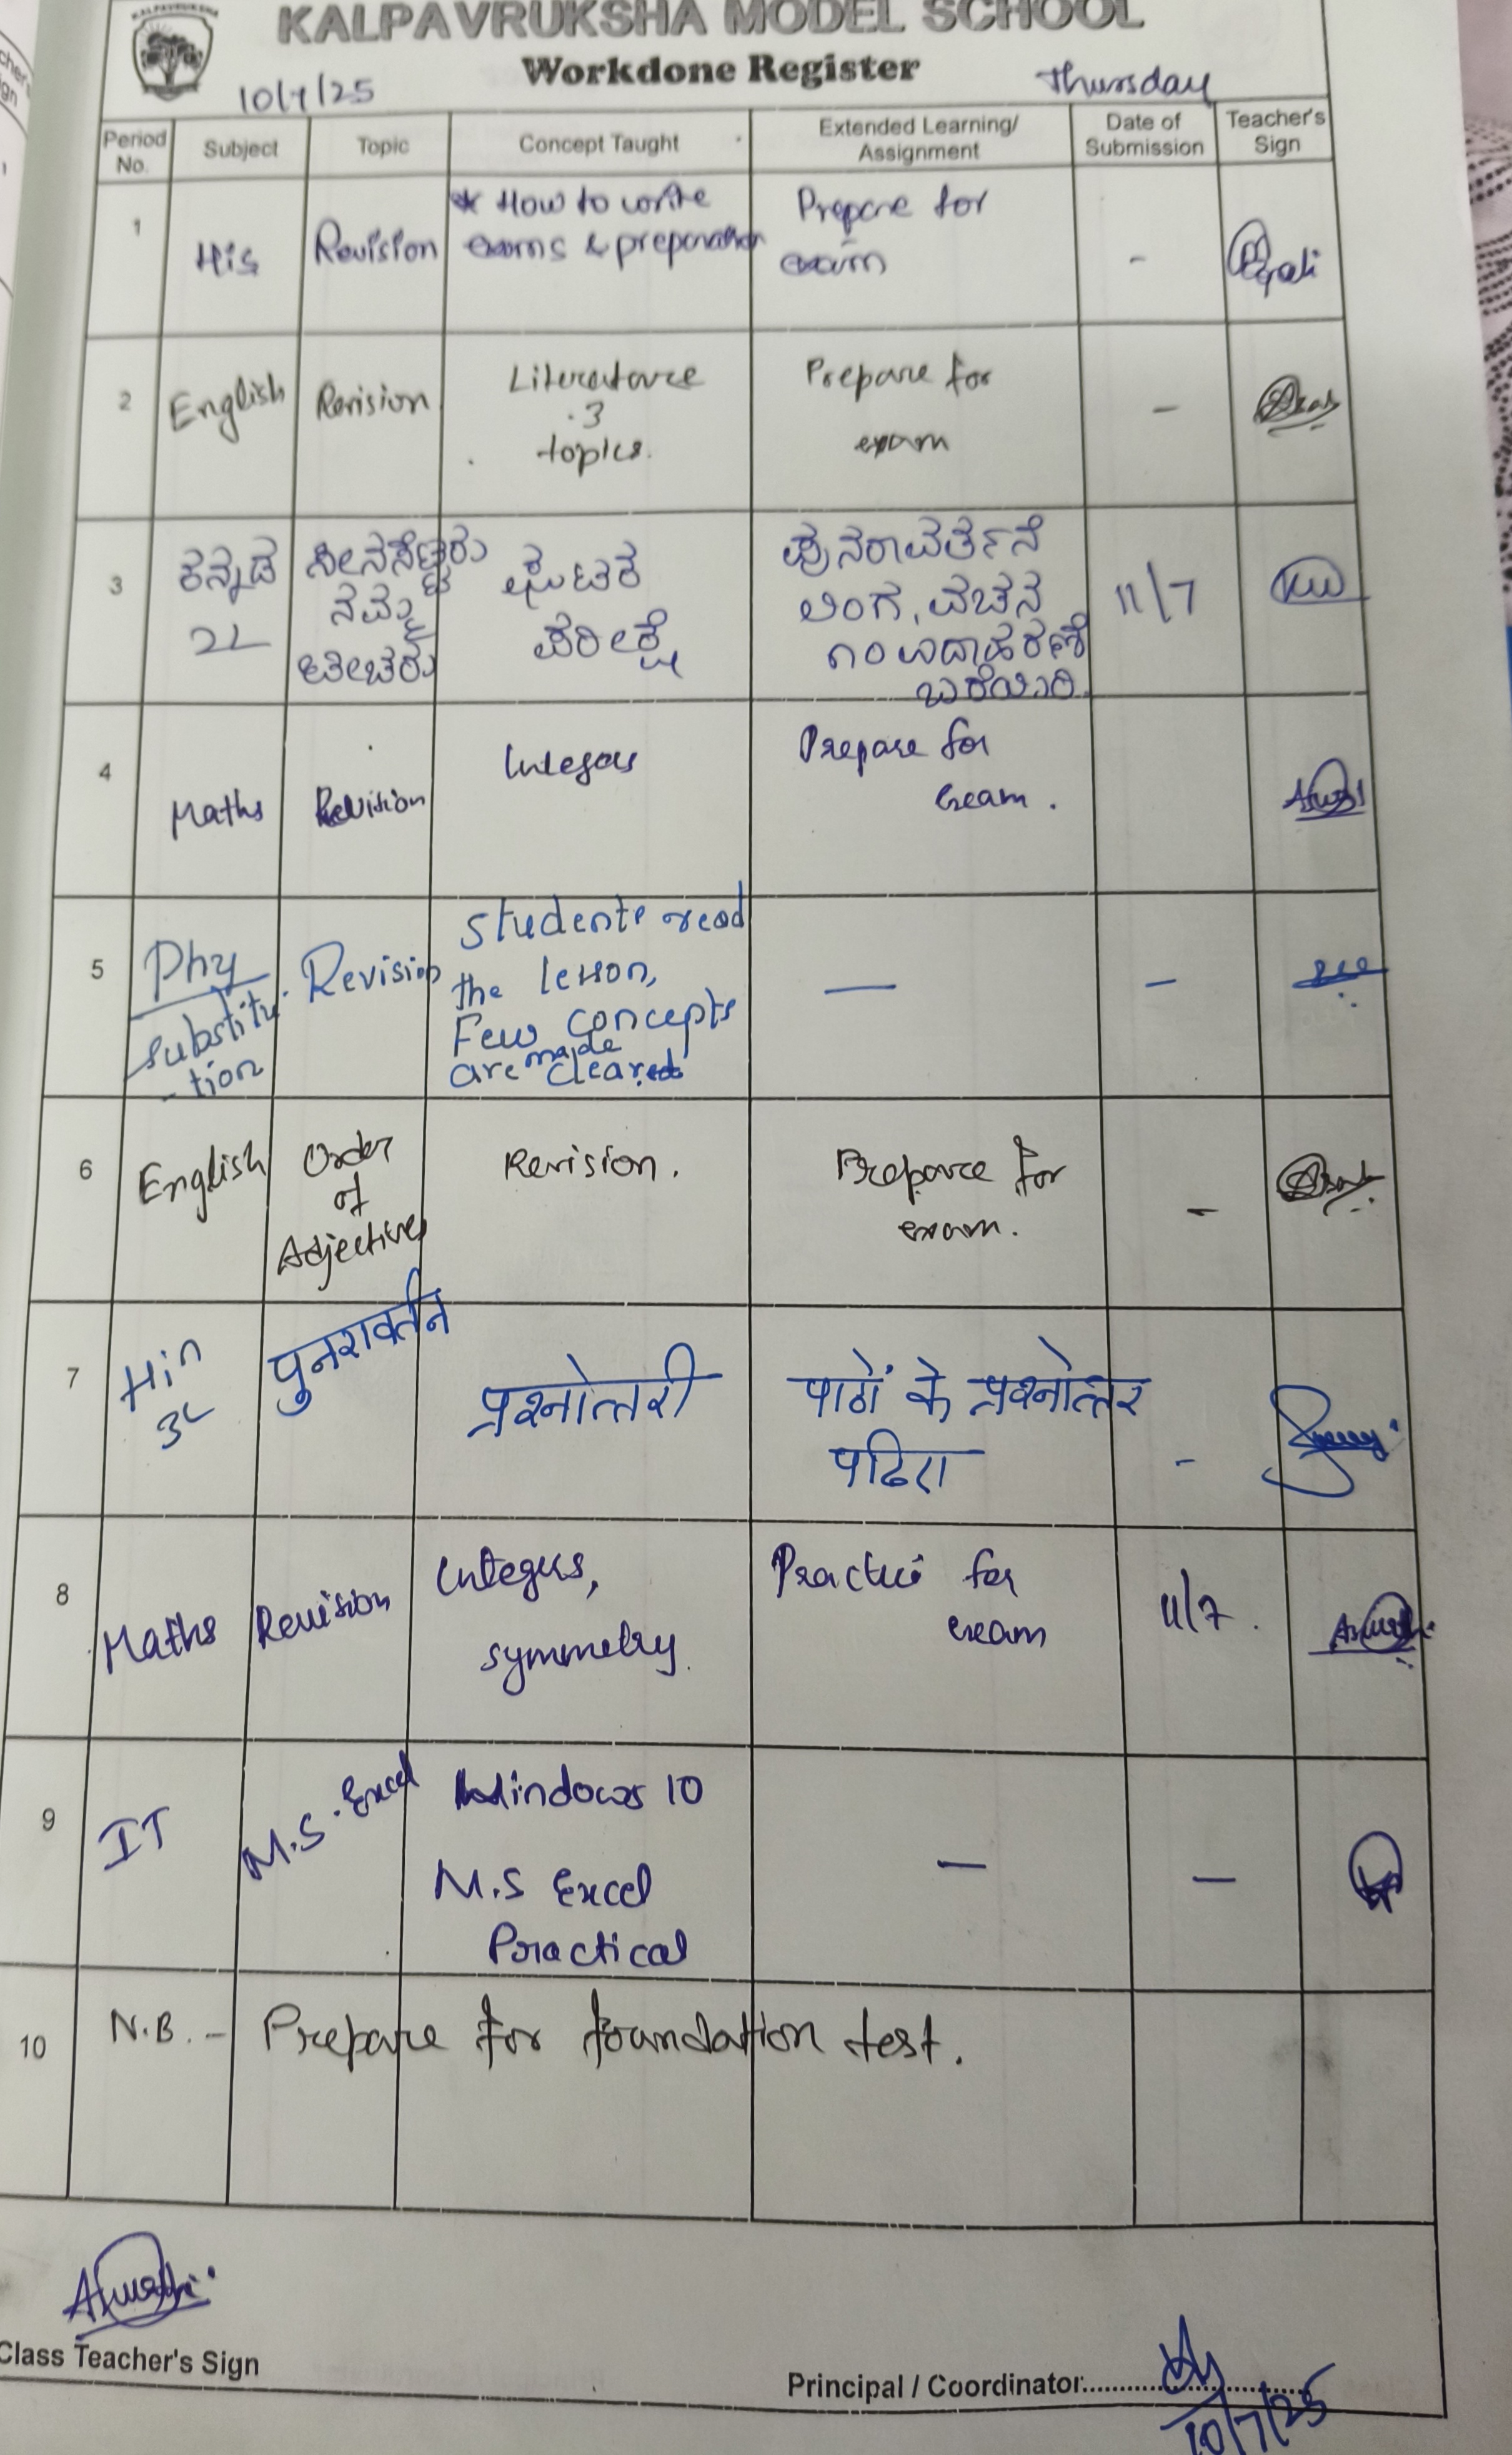 KALPAVRUKSHA
KALPAVRUKSHA MODEL SCHOOL
Workdone Register
10/7/25
Thursday
Period No.
Subject
Topic
Concept Taught
Extended Learning/
Assignment
Date of
Submission
Teacher's
Sign
1
His
Revision
* How to write
exams & preparation
Prepare for
exam
-
2
English
Revision
Literature
3
topics.
Prepare for
exam
-
3
ಕನ್ನಡ
2L
ಸೀನಸೆಟ್ಟರು
ನಮ್ಮ
ಟೀಚರು
ಘಟಕ
ಪರೀಕ್ಷೆ
ಪುನರಾವರ್ತನೆ
ಲಿಂಗ, ವಚನ
೧೦ ಉದಾಹರಣೆ
ಬರೆಯಿರಿ.
11/7
4
Maths
Revision
Integers
Prepare for
exam.
5
Phy
Substitu-
-tion
Revision
Students read
the lesson,
Few concepts
are made clear
—
-
6
English
Order
of
Adjectives
Revision.
Prepare for
exam.
-
7
Hin
3L
पुनरावर्तन
प्रश्नोत्तरी
पाठों के प्रश्नोत्तर
पढिए
-
8
Maths
Revision
Integers,
symmetry.
Practice for
exam
11/7.
9
IT
M.S. Excel
Windows 10
M.S Excel
Practical
—
—
10
N.B. - Prepare for foundation test.
Class Teacher's Sign
Principal / Coordinator:
10/7/25